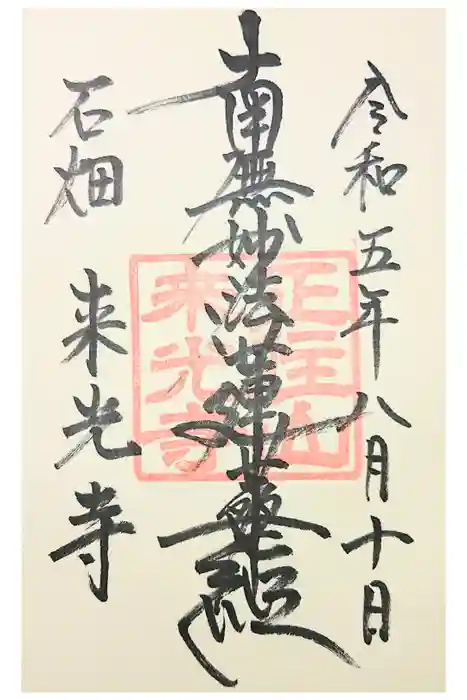 令和五年八月十日
南無妙法蓮華経
正主山
来光寺
石畑 来光寺